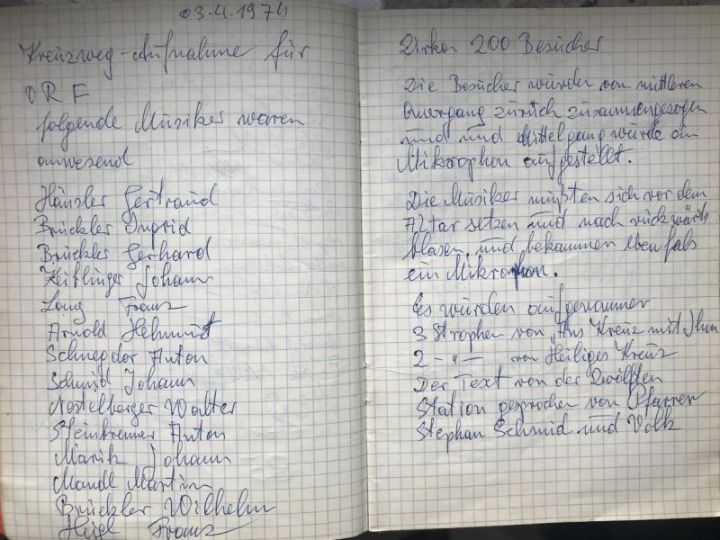 03.4.1974
Kreuzweg-Aufnahme für
ORF
folgende Musiker waren
anwesend
Häusler Gertraud
Brückler Ingrid
Brückler Gerhard
Johann
Lang Franz
Arnold Helmut
Schnepdor Anton
Schmid Johann
Nestelberger Walter
Anton
Marik Johann
Mandl Martin
Brückler Wilhelm
Franz
Zirka 200 Besucher
Die Besucher wurden vom mittleren
Quergang zurück zusammengezogen
und und Mittelgang wurde ein
Mikrophon aufgestellt.
Die Musiker mußten sich vor dem
Altar setzen und nach rückwärts
blasen und bekammen ebenfals
ein Mikrophon.
Es wurden aufgenommen
3 Strophen von "Ans Kreuz mit Ihm
2 - " - von Heiliges Kreuz
Der Text von der Zwölften
Station gesprochen von Pfarrer
Stephan Schmid und Volk